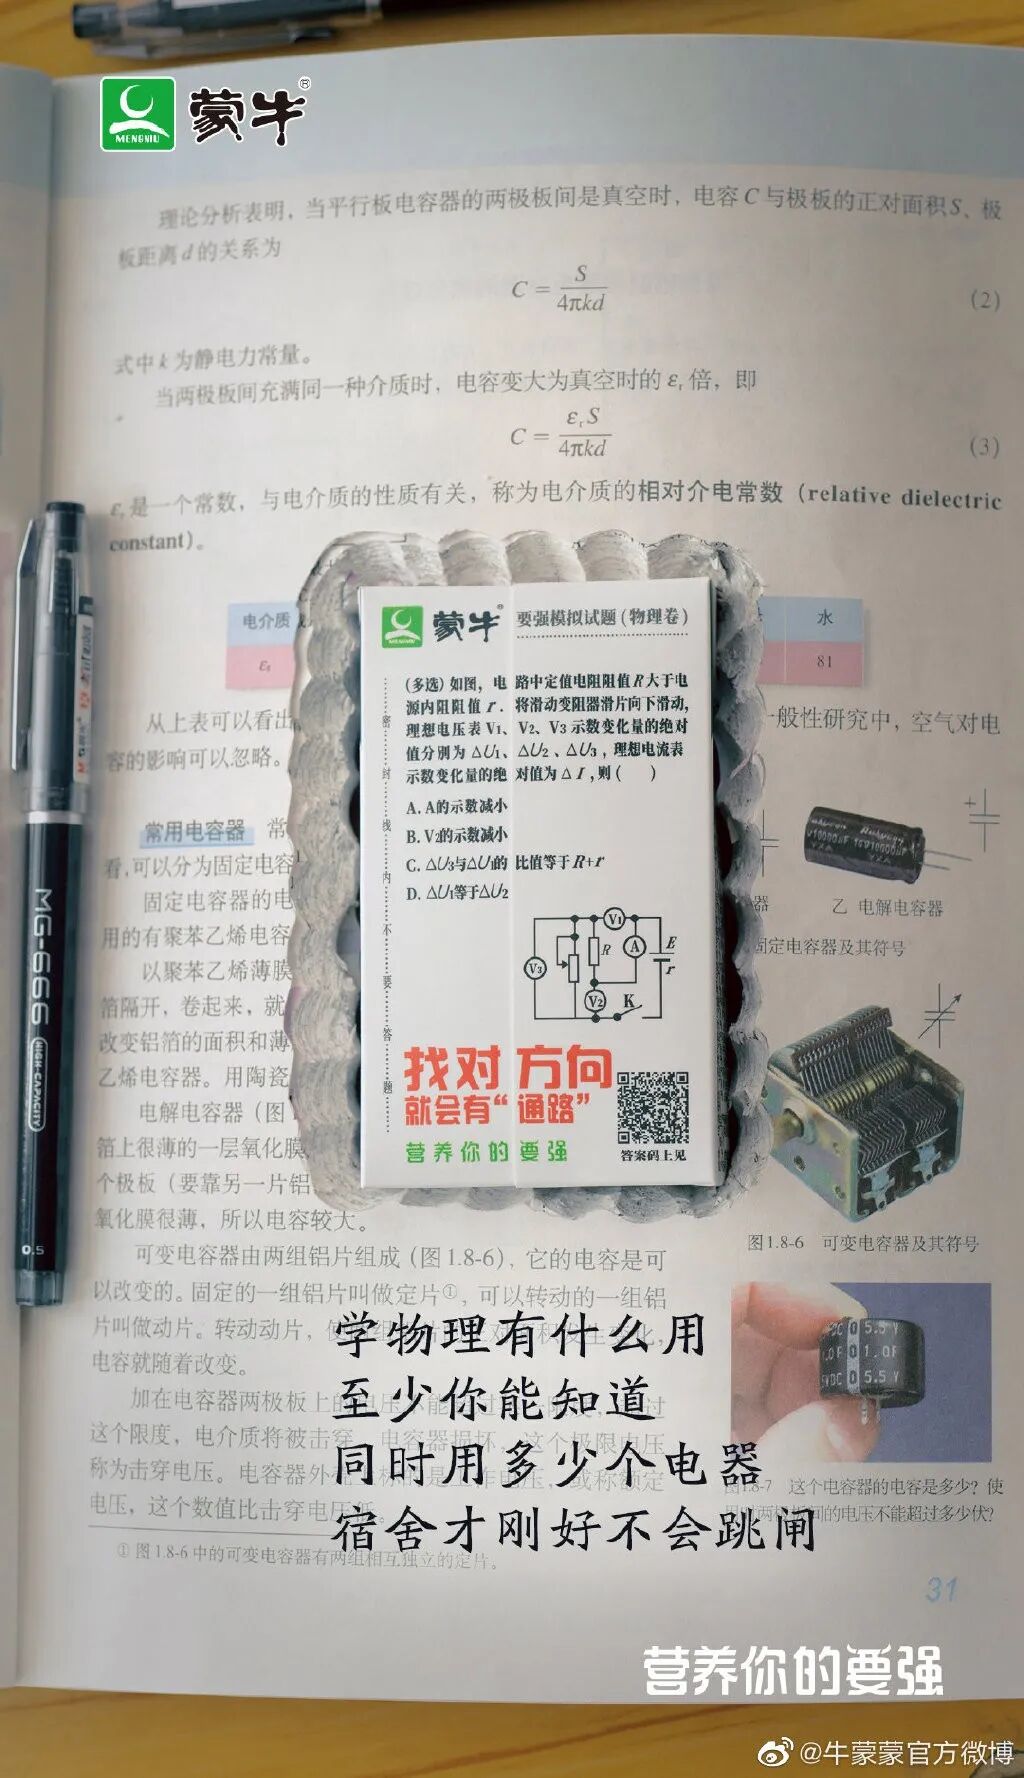 MENGNIU
蒙牛®
理论分析表明，当平行板电容器的两极板间是真空时，电容C与极板的正对面积S、极
板距离d的关系为
C = S/4πkd (2)
式中k为静电力常量。
当两极板间充满同一种介质时，电容变大为真空时的εr倍，即
C = εrS/4πkd (3)
εr是一个常数，与电介质的性质有关，称为电介质的相对介电常数（relative dielectric
constant）。
电介质
水
81
从上表可以看出
一般性研究中，空气对电
容的影响可以忽略。
常用电容器 常
看，可以分为固定电容
固定电容器的电
用的有聚苯乙烯电容
以聚苯乙烯薄膜
箔隔开，卷起来，就
改变铝箔的面积和薄
乙烯电容器。用陶瓷
电解电容器（图
箔上很薄的一层氧化膜
个极板（要靠另一片铝
氧化膜很薄，所以电容较大。
可变电容器由两组铝片组成（图1.8-6），它的电容是可
以改变的。固定的一组铝片叫做定片①，可以转动的一组铝
片叫做动片。转动动片，使
电容就随着改变。
加在电容器两极板上的电压不能超过
这个限度，电介质将被击穿，电容器损坏。这个极限电压
称为击穿电压。电容器外壳
电压，这个数值比击穿电压低。
① 图1.8-6中的可变电容器有两组相互独立的定片。
器
乙 电解电容器
固定电容器及其符号
图1.8-6 可变电容器及其符号
5.5V
1.0F
5.5V
图1.8-7 这个电容器的电容是多少？使
用时两极板间的电压不能超过多少伏？
31
MG-666
HIGH CAPACITY
0.5
MENGNIU
蒙牛®
要强模拟试题（物理卷）
密封线内不要答题
(多选)如图，电路中定值电阻阻值R大于电
源内阻阻值r．将滑动变阻器滑片向下滑动，
理想电压表V1、V2、V3示数变化量的绝对
值分别为△U1、△U2、△U3，理想电流表
示数变化量的绝对值为△I，则（ ）
A. A的示数减小
B. V2的示数减小
C. △U3与△I的比值等于R+r
D. △U1等于△U2
V1
R
A
E
r
V3
V2
K
找对方向
就会有“通路”
营养你的要强
答案码上见
学物理有什么用
至少你能知道
同时用多少个电器
宿舍才刚好不会跳闸
营养你的要强
@牛蒙蒙官方微博